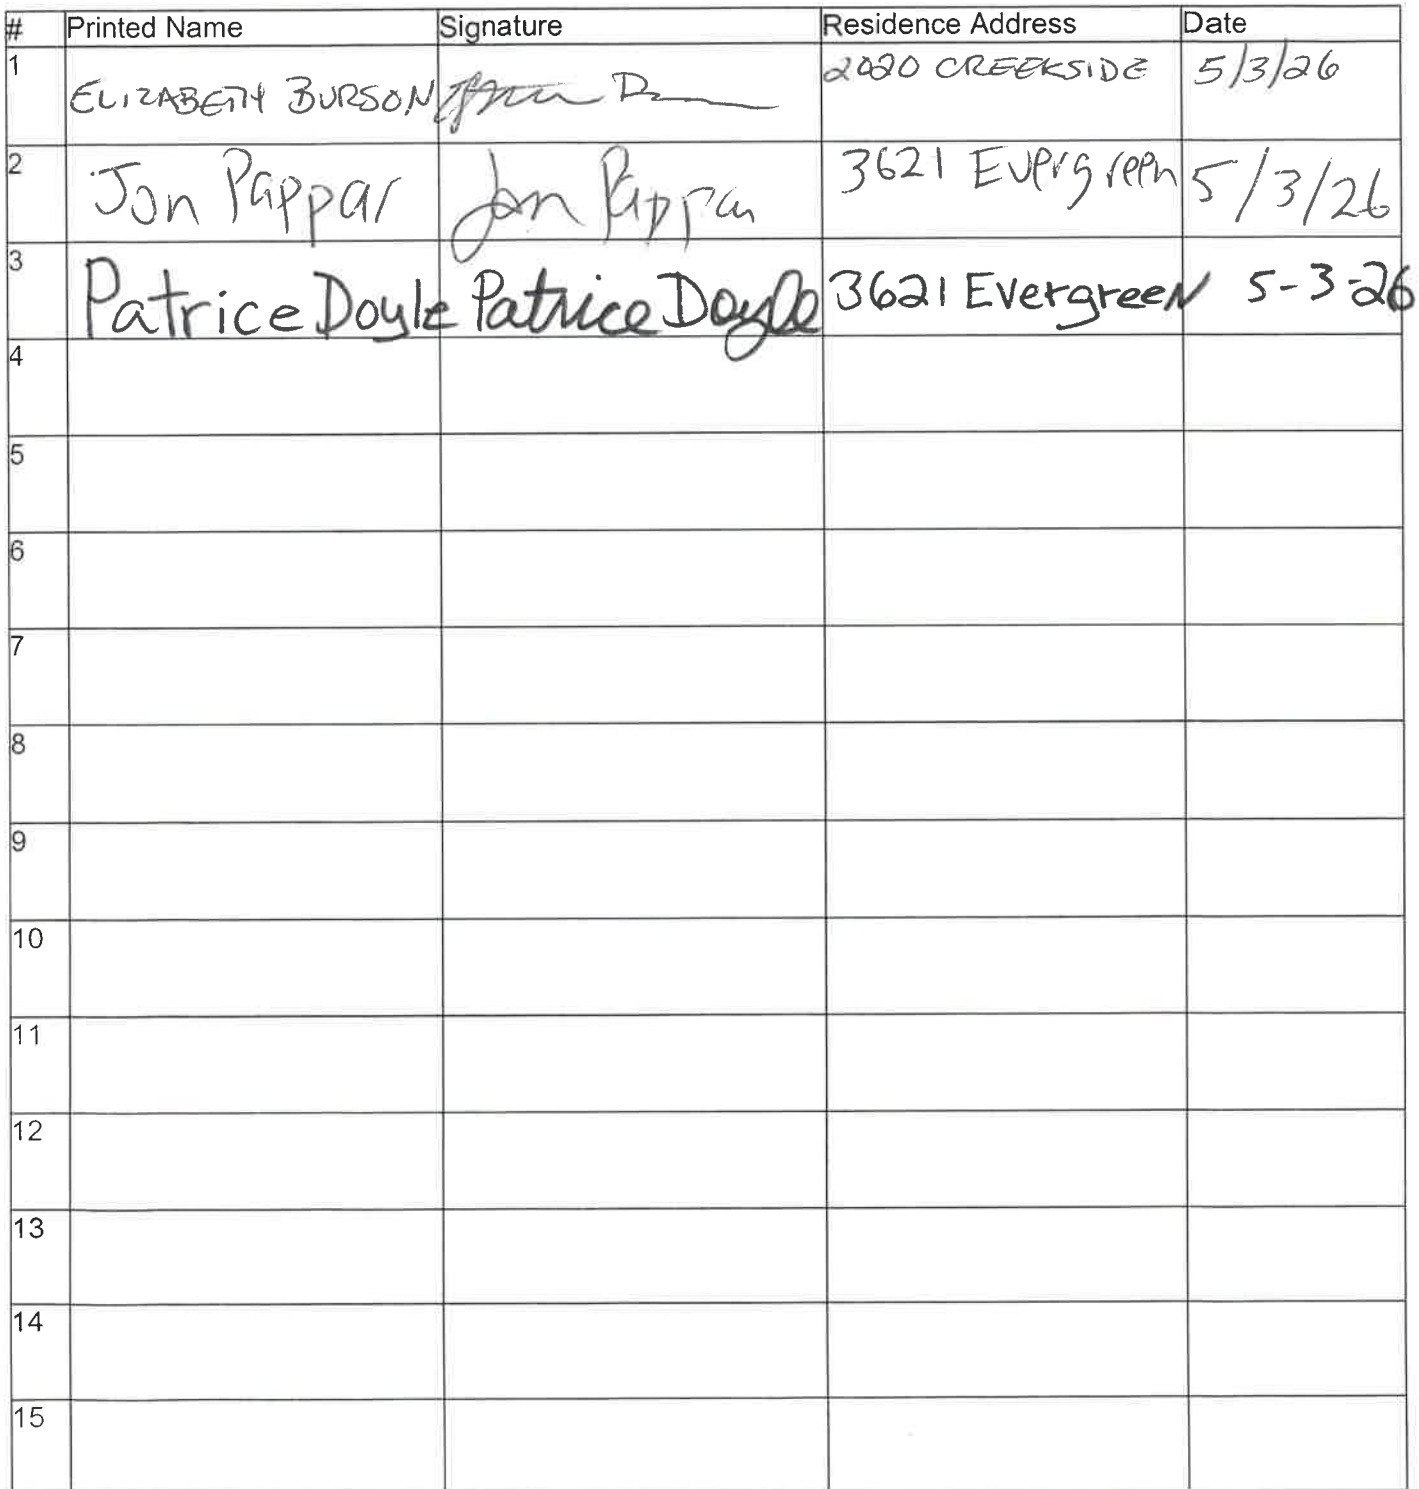 # Printed Name Signature Residence Address Date
1 ELIZABETH BURSON 2020 CREEKSIDE 5/3/26
2 Jon Pappar Jon Pappar 3621 Evergreen 5/3/26
3 Patrice Doyle Patrice Doyle 3621 Evergreen 5-3-26
4
5
6
7
8
9
10
11
12
13
14
15